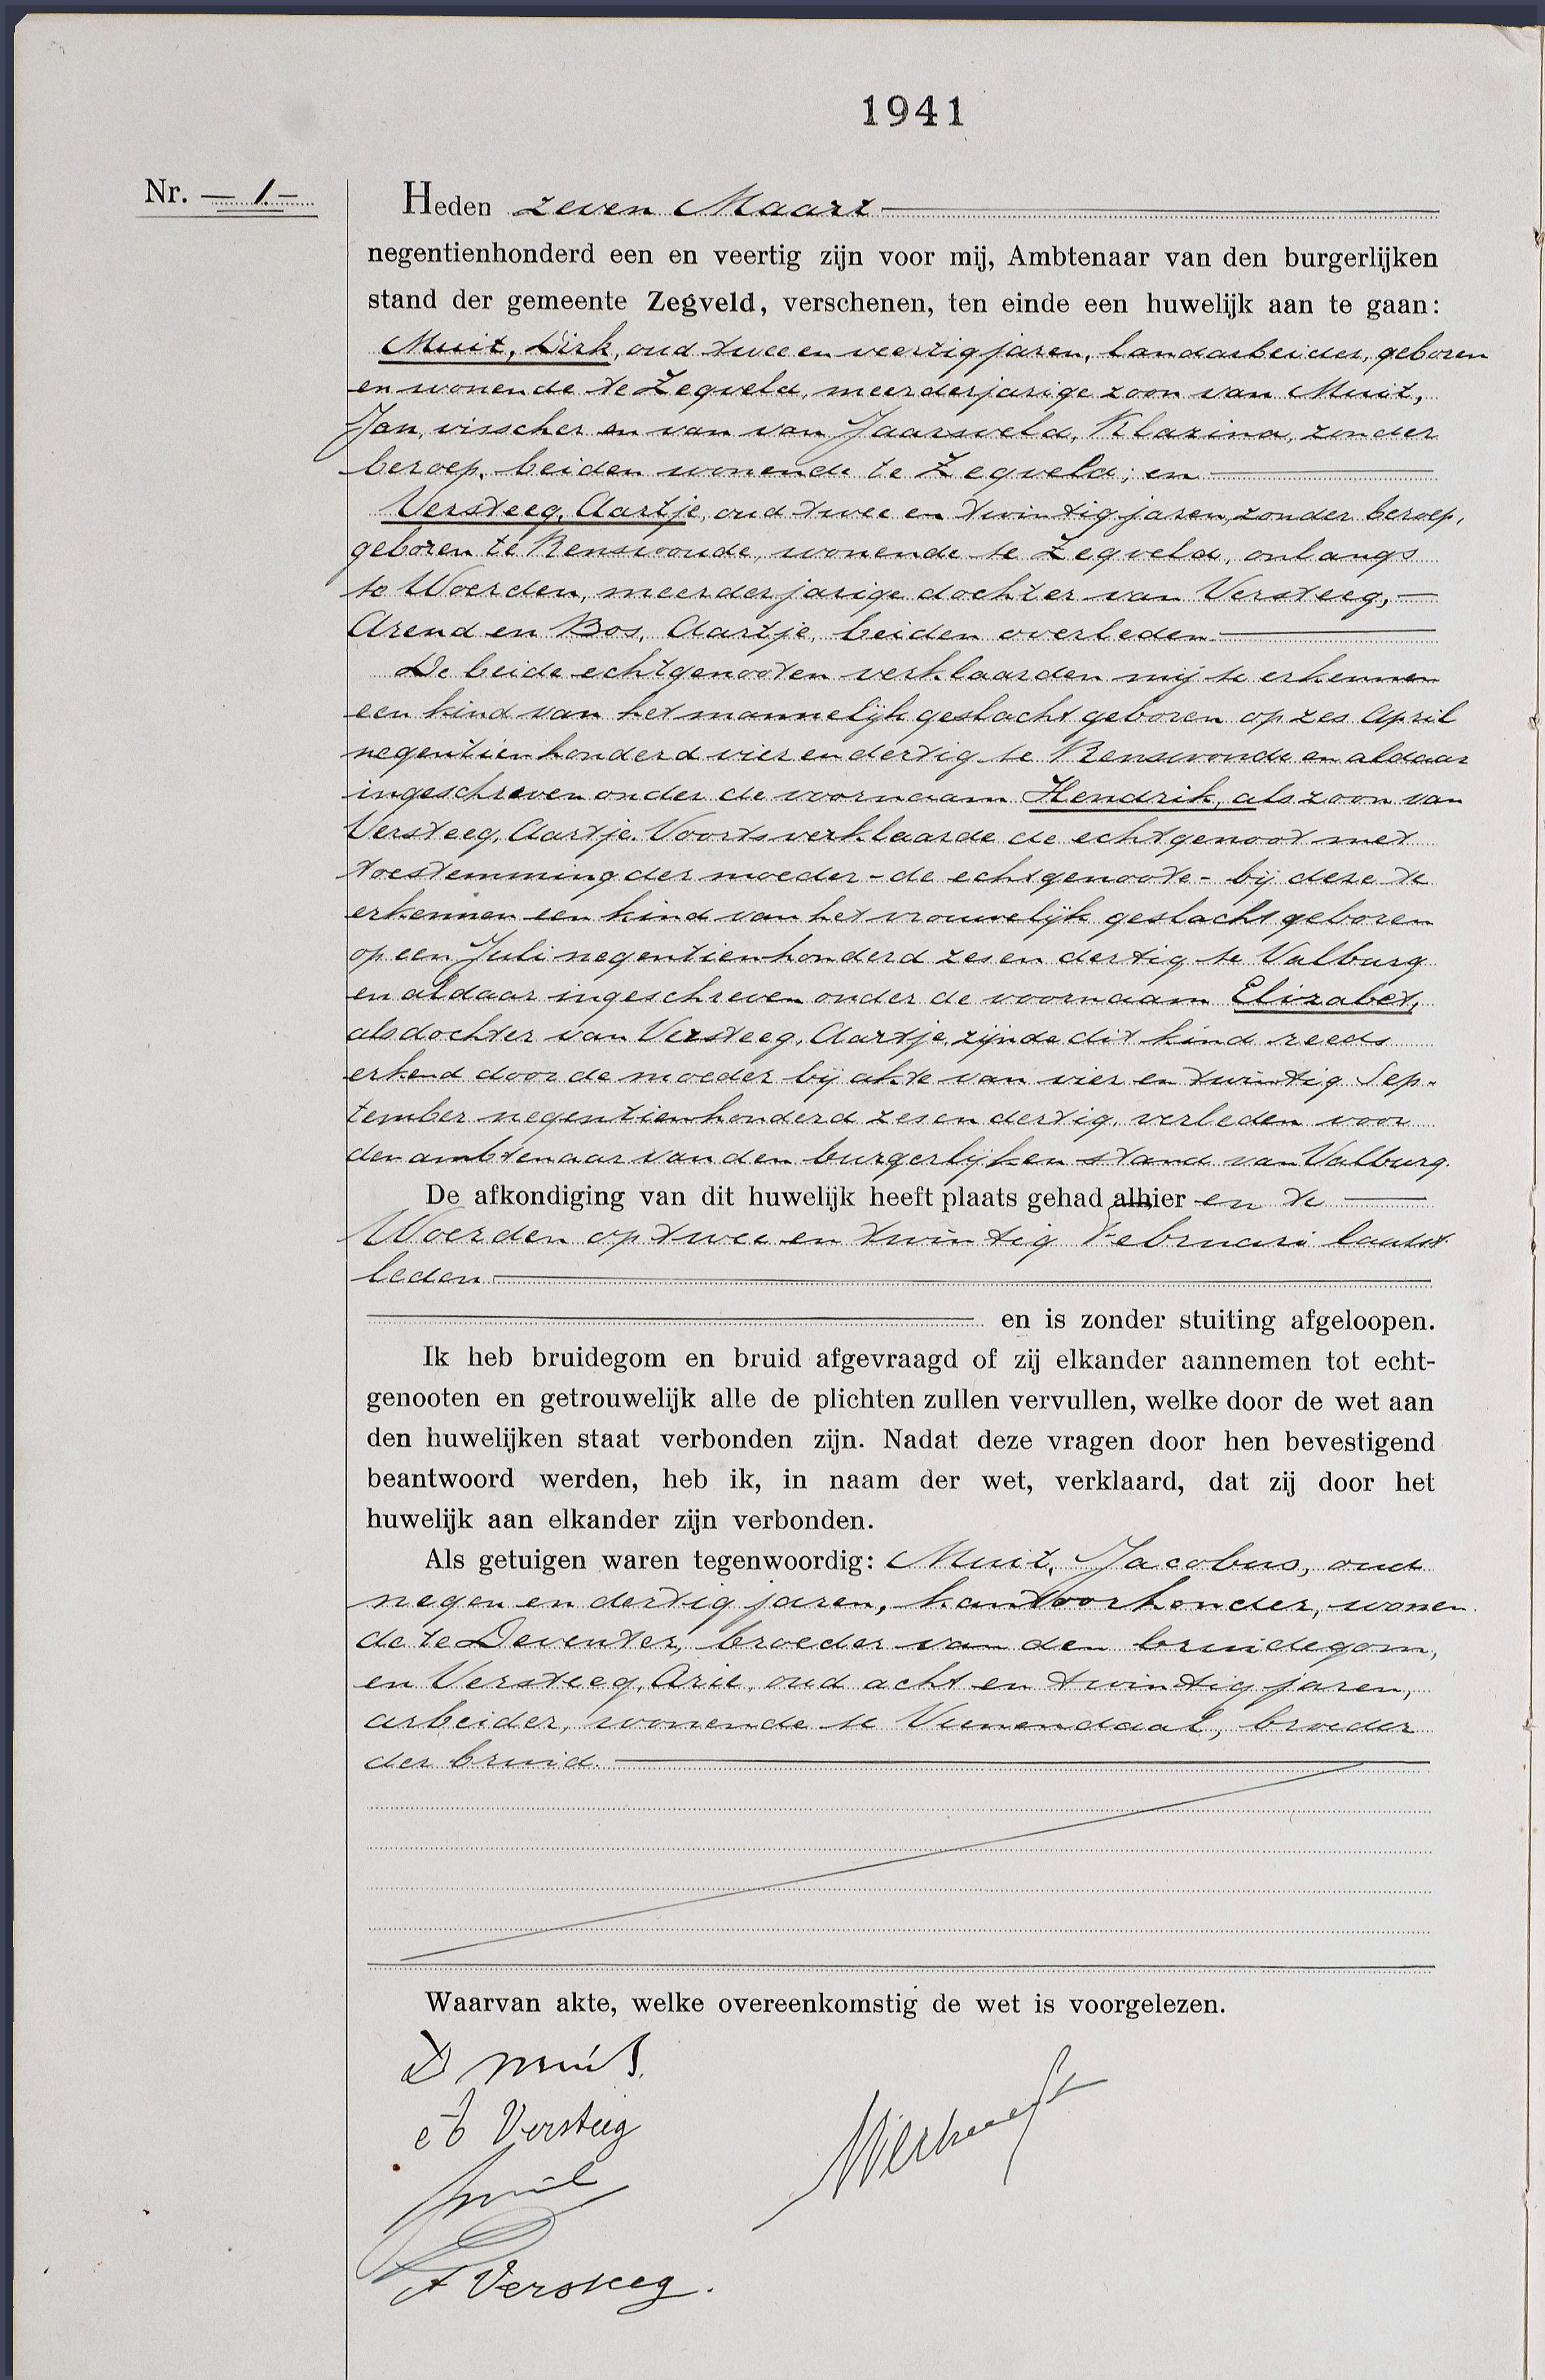 1941
Nr. — 1 —
Heden zeven Maart
negentienhonderd een en veertig zijn voor mij, Ambtenaar van den burgerlijken
stand der gemeente Zegveld, verschenen, ten einde een huwelijk aan te gaan:
Muit, Dirk, oud twee en veertig jaren, landarbeider, geboren
en wonende te Zegveld, meerderjarige zoon van Muit,
Jan, visscher en van van Jaarsveld, Klazina, zonder
beroep, beiden wonende te Zegveld; en
Versteeg, Aartje, oud twee en twintig jaren, zonder beroep,
geboren te Renswoude, wonende te Zegveld, onlangs
te Woerden, meerderjarige dochter van Versteeg, —
Arend en Bos, Aartje, beiden overleden.
De beide echtgenooten verklaarden mij te erkennen
een kind van het mannelijk geslacht geboren op zes April
negentienhonderd vier en dertig te Renswoude en aldaar
ingeschreven onder de voornaam Hendrik, als zoon van
Versteeg, Aartje. Voorts verklaarde de echtgenoot met
toestemming der moeder - de echtgenoote - bij deze te
erkennen een kind van het vrouwelijk geslacht geboren
op een Juli negentienhonderd zes en dertig te Valburg
en aldaar ingeschreven onder de voornaam Elizabet,
als dochter van Versteeg, Aartje, zijnde dit kind reeds
erkend door de moeder bij akte van vier en twintig Sep-
tember negentienhonderd zes en dertig, verleden voor
den ambtenaar van den burgerlijken stand van Valburg.
De afkondiging van dit huwelijk heeft plaats gehad alhier en te
Woerden op twee en twintig Februari laatst-
leden
en is zonder stuiting afgeloopen.
Ik heb bruidegom en bruid afgevraagd of zij elkander aannemen tot echt-
genooten en getrouwelijk alle de plichten zullen vervullen, welke door de wet aan
den huwelijken staat verbonden zijn. Nadat deze vragen door hen bevestigend
beantwoord werden, heb ik, in naam der wet, verklaard, dat zij door het
huwelijk aan elkander zijn verbonden.
Als getuigen waren tegenwoordig: Muit, Jacobus, oud
negen en dertig jaren, kantoorhouder, wonen-
de te Deventer, broeder van den bruidegom,
en Versteeg, Arie, oud acht en twintig jaren,
arbeider, wonende te Veenendaal, broeder
der bruid.
Waarvan akte, welke overeenkomstig de wet is voorgelezen.
D Muit.
Versteeg
A Versteeg.